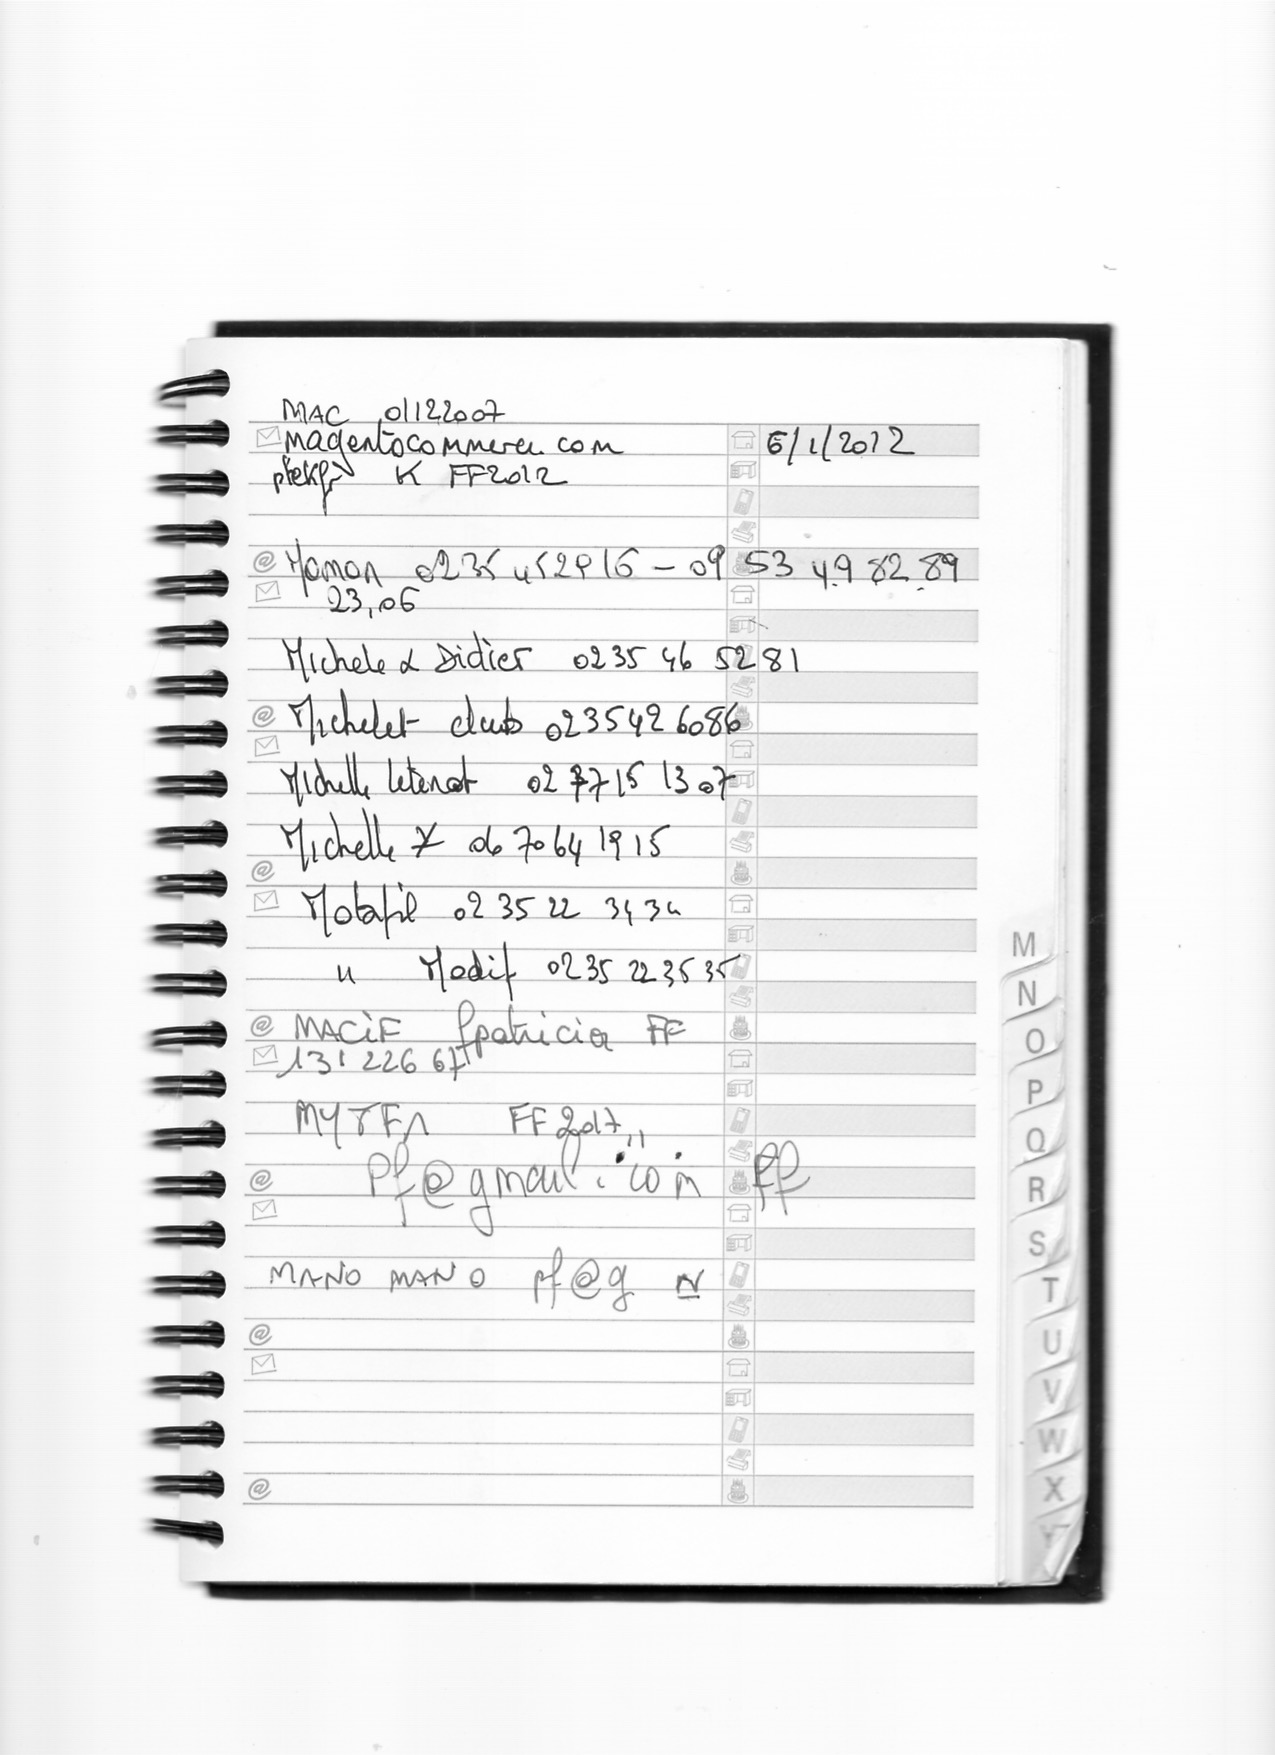 MAC 01122007
magentocommerce.com 6/1/2012
K FF2012
Maman 0235452916 - 09 53 49 82 89
23,06
Michele & Didier 0235 46 52 81
Michelet club 0235426086
Michelle 02 77 15 13 07
Michelle 06 70 64 19 15
02 35 22 34 34
" Modif 02 35 22 35 35
MACiF fpatricia FF
131 226 67
MYTFA FF2017
Pf@gmail.com ff
MANO MANO pf@g N
M
N
O
P
Q
R
S
T
U
V
W
X
Y